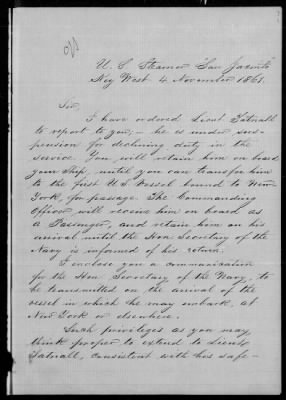 U. S. Steamer "San Jacinto"
Key West 4. November 1861.
Sir,
I have ordered Lieut Tatnall
to report to you, — he is under sus-
pension for declining duty in the
service. You will retain him on board
your Ship, until you can transfer him
to the first U.S. Vessel bound to New
York, for passage. The Commanding
Officer will receive him on board as
a Passenger, and retain him on his
arrival until the Hon. Secretary of the
Navy is informed of his return.
I enclose you a communication
for the Hon. Secretary of the Navy, to
be transmitted on the arrival of the
vessel in which he may embark, at
New York or elsewhere.
Such privileges as you may
think proper to extend to Lieut.
Tatnall, consistent with his safe-